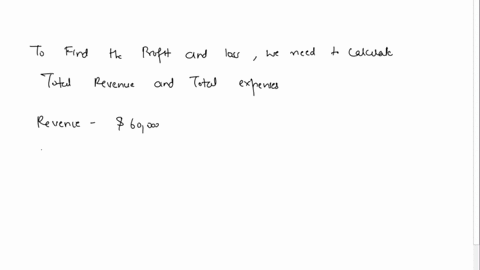 To Find the Profit and loss, we need to Calculate
Total Revenue and Total expenses
Revenue - $60,000